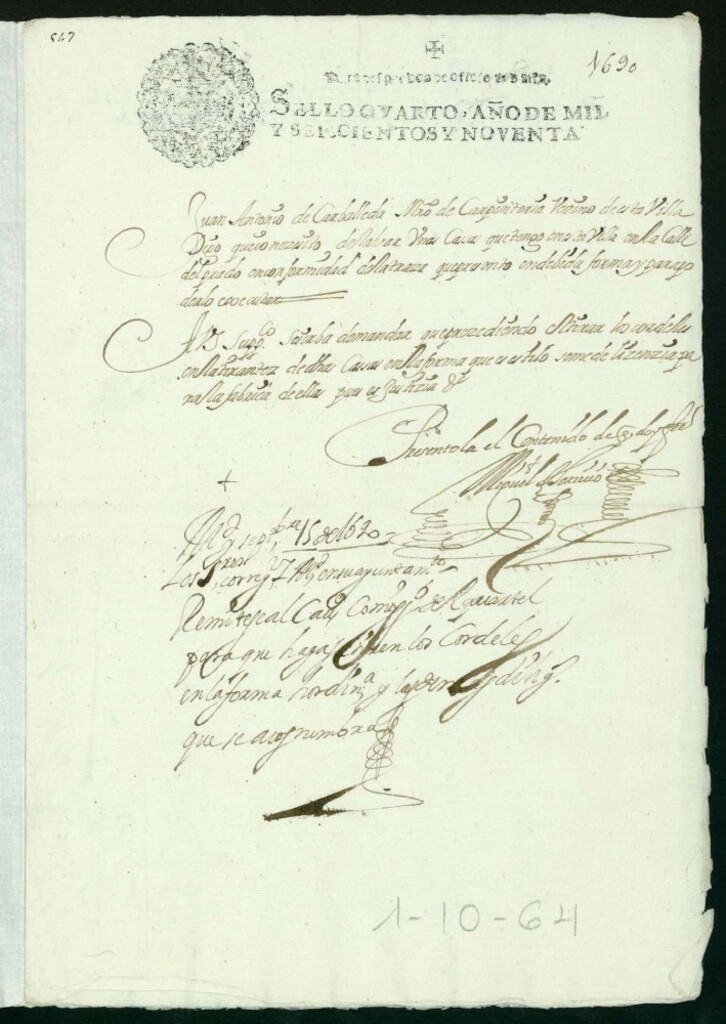 547
1690
SELLO QVARTO, AÑO DE MIL
Y SEISCIENTOS Y NOVENTA
Juan Antonio de Carballeda Mro de Carpinteria Vecino de esta Villa
Digo que yo necesito de labrar Una Casa que tengo en esta Villa en la Calle
del prado en conformidad de la traza que presento en debida forma y para po
derlo executar
A VS Suppco se sirba de mandar que precediendo el tirar los cordeles
en la tirantez de dha Cassa en la forma que es estilo se me de lizencia pa
ra la fabrica de ella pues es Justicia &
Presentola el Contenido de q doy fee
Miguel
Md y septbre 15 de 1690
Los Sres corregr Y Md en su ayuntamto
Remitese al Cauo Comisso del quartel
para que haga se tiren los Cordeles
en la forma hordina y las demas dilig
que se acostumbra
1-10-64